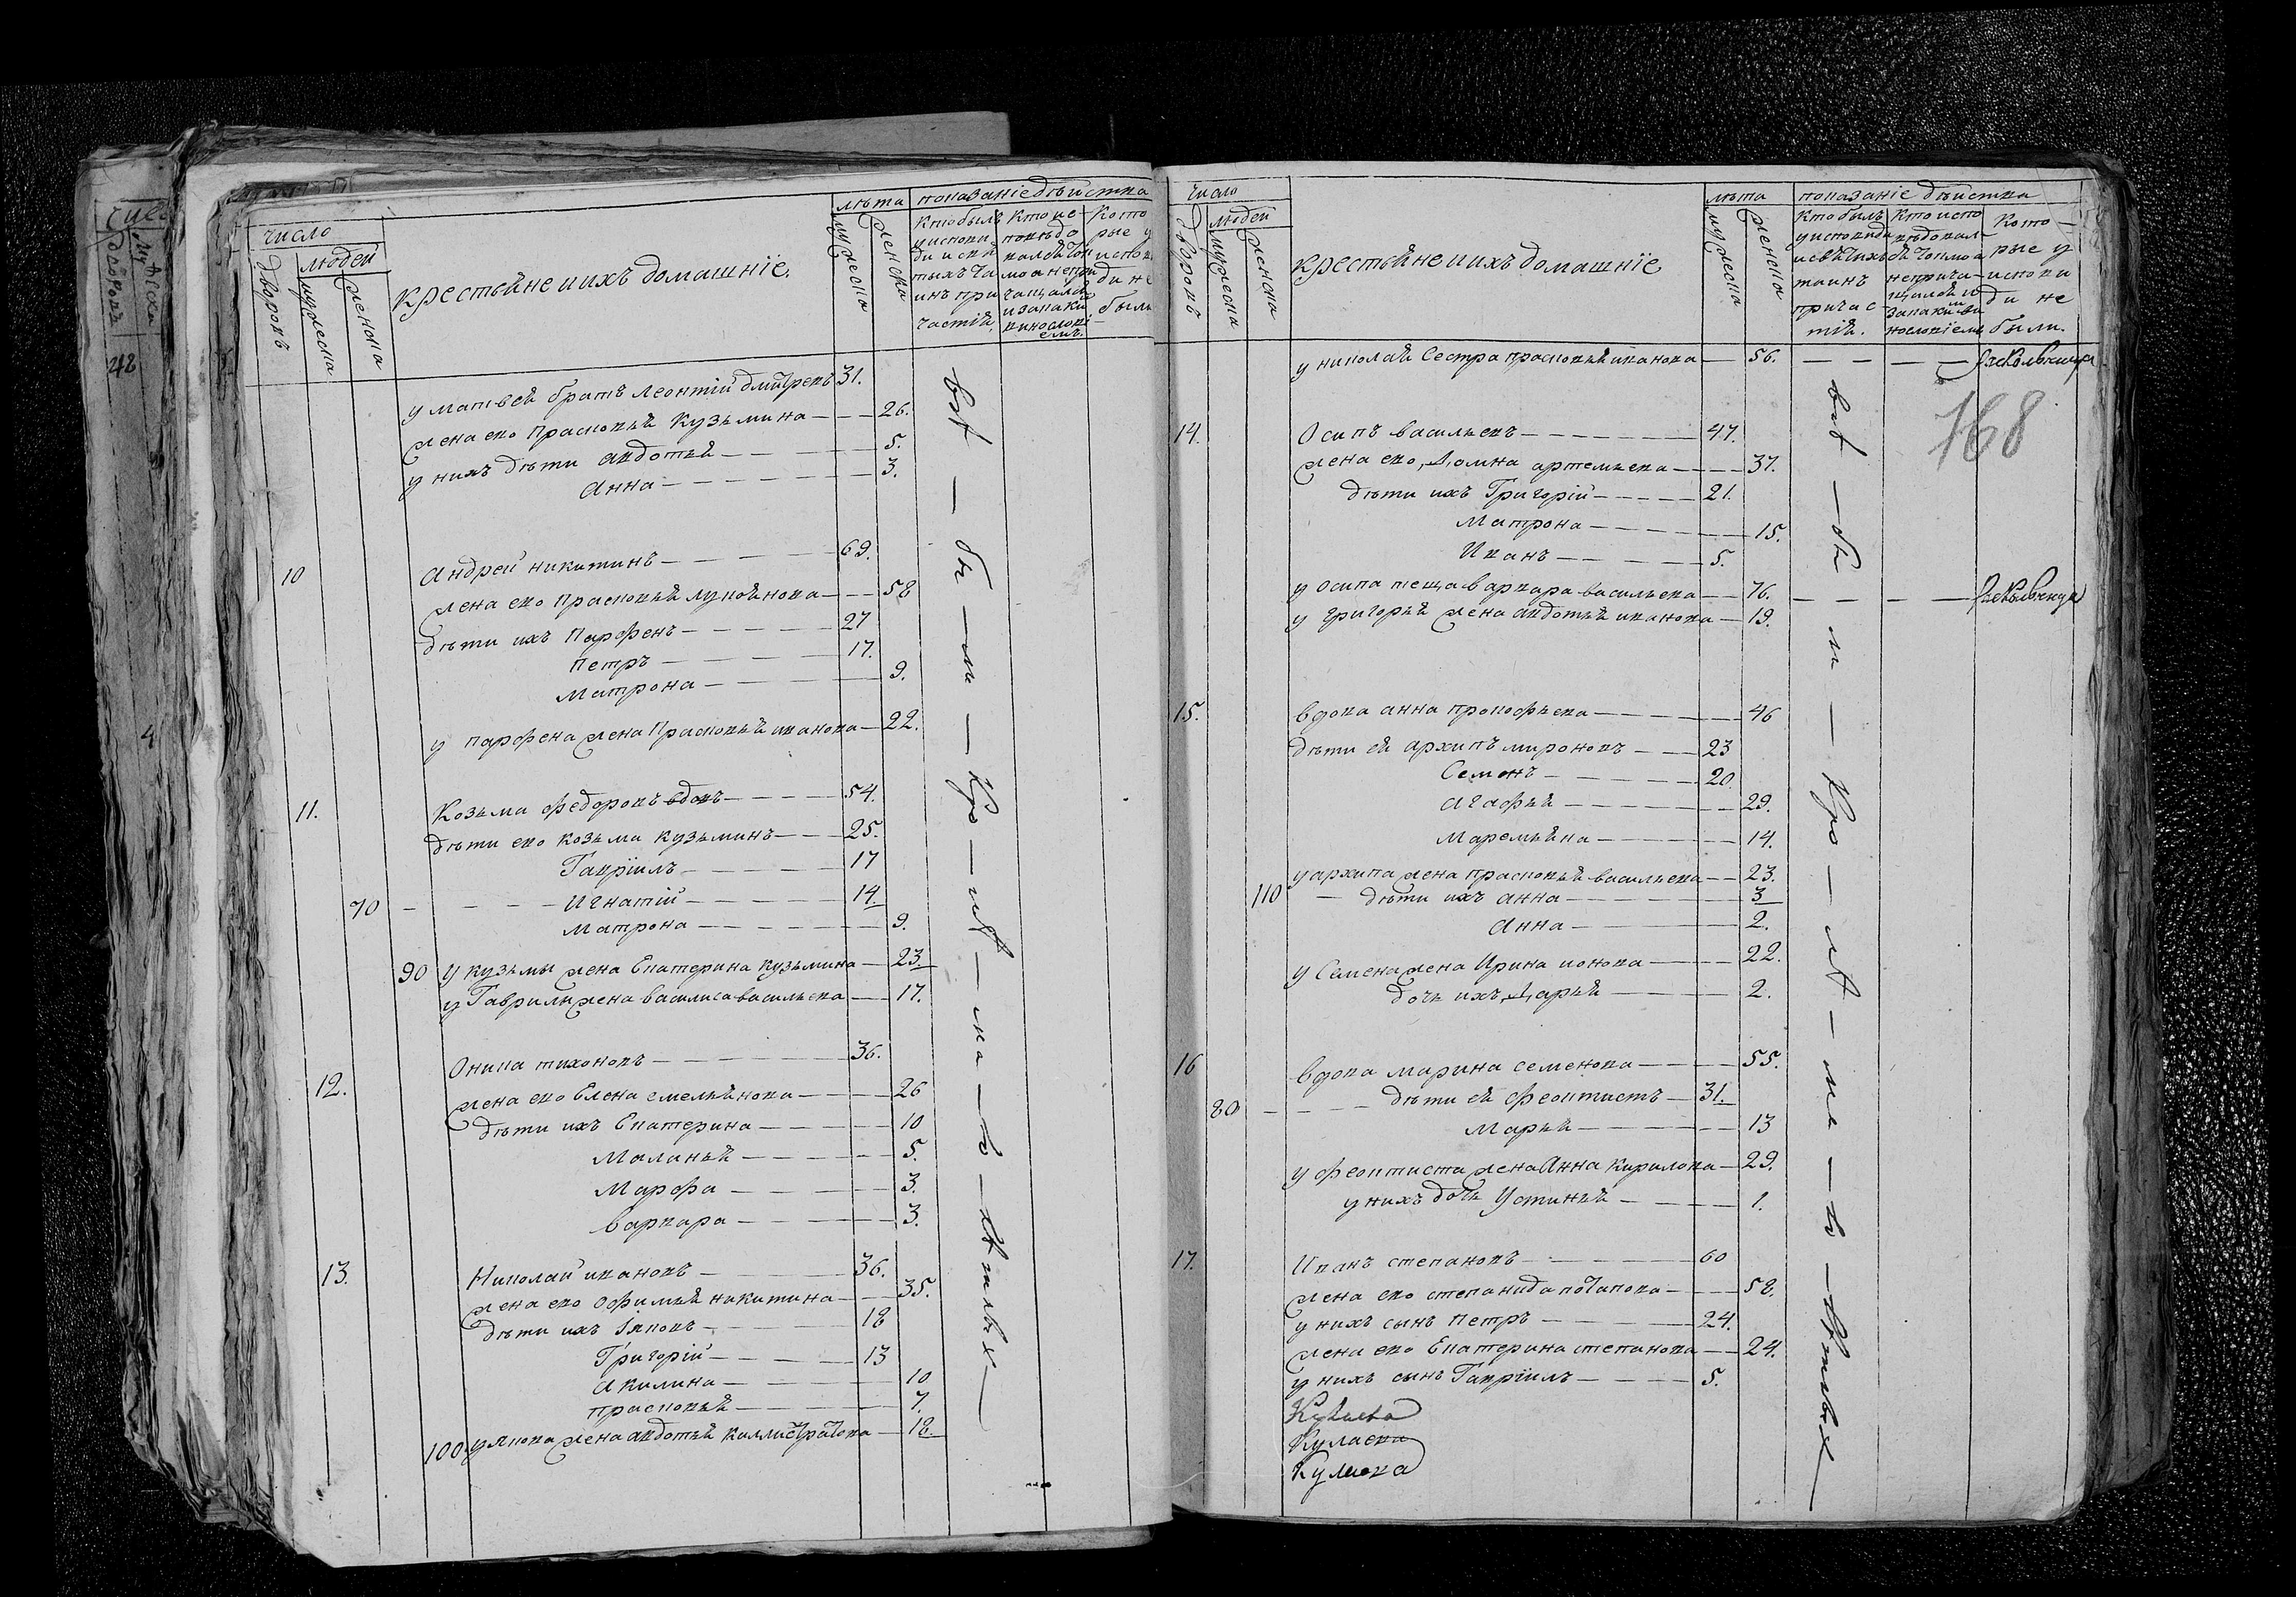 число
дворовъ
людей
мужеска
женска
крестьяне и ихъ домашніе.
лѣта
мужеска
женска
показаніе дѣйства
кто былъ у исповѣди и святыхъ таинъ причастія.
кто исповѣдовался токмо а не причащался и за какимъ винословіемъ
которые у исповѣди не были
у матвея братъ леонтій дмитревъ 31.
жена ево прасковья Кузьмина — 26.
у нихъ дѣти авдотья — 5.
анна — 3.
10 андрей никитинъ — 69.
жена ево прасковья лукьянова — 58
дѣти ихъ парфенъ — 27
петръ — 17.
матрона — 9.
у парфена жена прасковья иванова — 22.
11. Козьма федоровъ вдовъ — 54.
дѣти ево козьма кузьминъ — 25.
Гавріилъ — 17
70 — игнатій — 14.
матрона — 9.
90 у кузьмы жена Екатерина кузьмина — 23.
у Гаврилы жена василиса васильева — 17.
12. Оника тихоновъ — 36.
жена ево Елена емельянова — 26
дѣти ихъ Екатерина — 10
Маланья — 5.
марфа — 3.
варвара — 3.
13. Николай ивановъ — 36.
жена ево офимья никитина — 35.
дѣти ихъ Іяковъ — 18
Григорій — 13
акилина — 10
прасковья — 7.
100 у якова жена авдотья каллистратова — 18.
всѣ — бы — ли — кро — мѣ — ма — ло — лѣтныхъ
число
дворовъ
людей
мужеска
женска
крестьяне и ихъ домашніе
лѣта
мужеска
женска
показаніе дѣйства
кто былъ у исповѣди и святыхъ таинъ причастія.
кто исповѣдовался токмо а не причащался и за какимъ винословіемъ
которые у исповѣди не были.
у николая Сестра прасковья иванова — 56. — — — раскольница
768
14. Осипъ васильевъ — 47.
жена ево, Домна артемьева — 37.
дѣти ихъ Григорій — 21.
матрона — 15.
Иванъ — 5.
у осипа теща варвара васильева — 76. — — — раскольница
у григорья жена авдотья иванова — 19.
15. вдова анна прокофьева — 46
дѣти ея архипъ мироновъ — 23
Семенъ — 20.
агафья — 29.
маремьяна — 14.
у архипа жена прасковья васильева — 23.
110 — дѣти ихъ анна — 3
анна — 2.
у Семена жена Ирина ионова — 22.
дочь ихъ, Дарья — 2.
16 вдова марина семенова — 55.
80 — дѣти ея феоктистъ — 31.
марья — 13
у феоктиста жена Анна кирилова — 29.
у нихъ дочь Устинья — 1.
17. Иванъ степановъ — 60
жена ево степанида потапова — 58.
у нихъ сынъ петръ — 24.
жена ево Екатерина степанова — 24.
у нихъ сынъ Гавріилъ — 5.
всѣ — бы — ли — кро — мѣ — ма — ло — лѣтныхъ